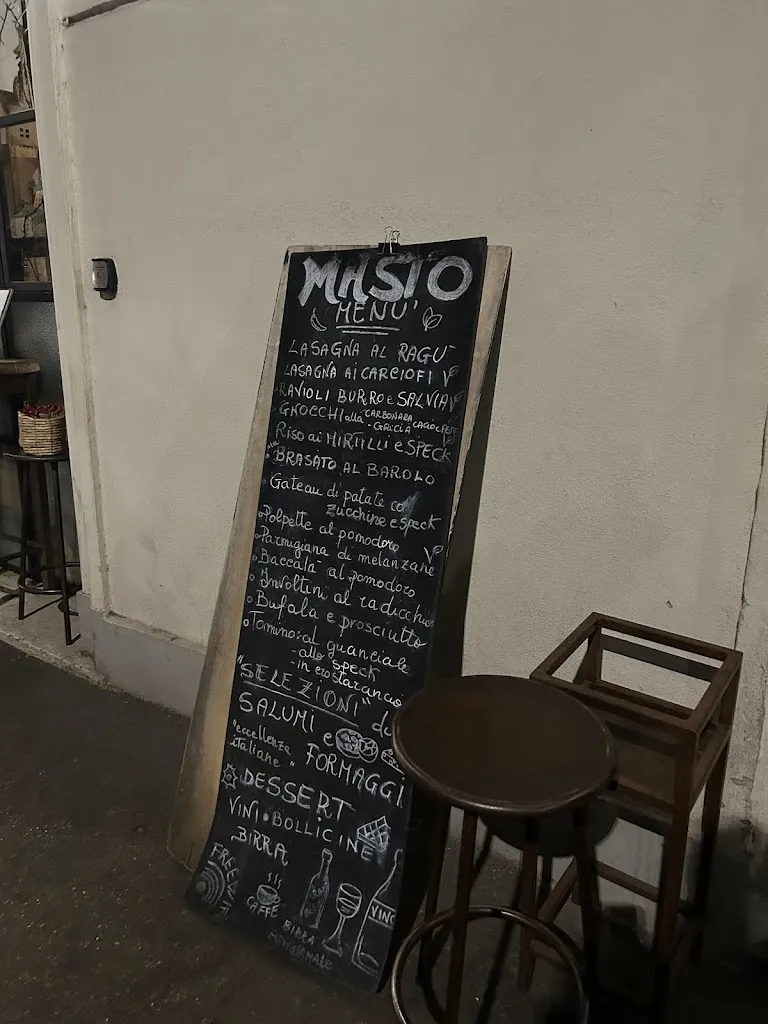 MASTO
MENU'
LASAGNA AL RAGU'
LASAGNA AI CARCIOFI
RAVIOLI BURRO e SALVIA
GNOCCHI alla CARBONARA CACIO e PEPE
- GRICIA
RISO ai MIRTILLI e SPECK
BRASATO AL BAROLO
Gateau di patate co
zucchine e speck
Polpette al pomodoro
Parmigiana di melanzane
Baccalà al pomodoro
Involtini al radicchio
Bufala e prosciutto
Tomino: al guanciale
- allo speck
- in crosta
"SELEZIONI" di
SALUMI e
"eccellenza
italiane"
FORMAGGI
DESSERT
VINI • BOLLICINE
BIRRA
FREE WIFI
CAFFÈ
BIRRA
ARTIGIANALE
VINO